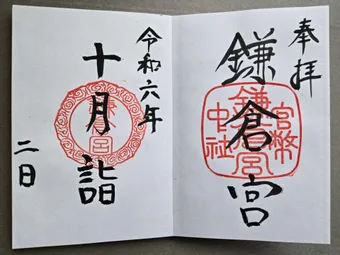 奉拝
鎌倉宮
官幣中社
鎌倉宮
令和六年
十月詣
二日
鎌倉宮